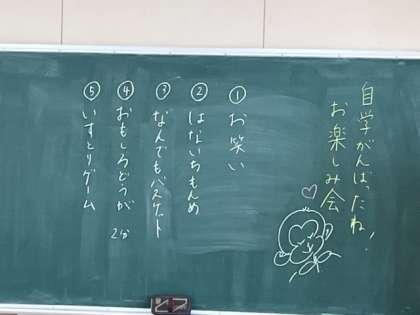 自学がんばったね!
お楽しみ会
①お笑い
②はないちもんめ
③なんでもバスケット
④おもしろどうが 2分
⑤いすとりゲーム